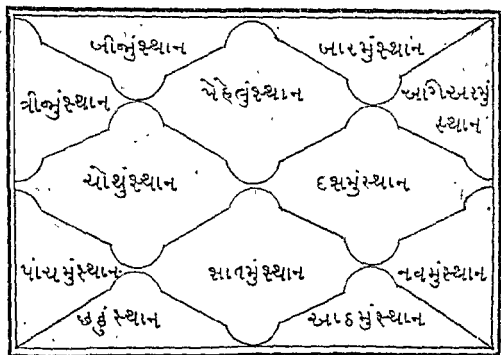 બીજુંસ્થાન
બારમુંસ્થાન
ત્રીજુંસ્થાન
પેહેલુંસ્થાન
આગિઅરમું
સ્થાન
ચોથુંસ્થાન
દસમુંસ્થાન
પાંચમુંસ્થાન
સાતમુંસ્થાન
નવમુંસ્થાન
છઠ્ઠું સ્થાન
આઠમુંસ્થાન